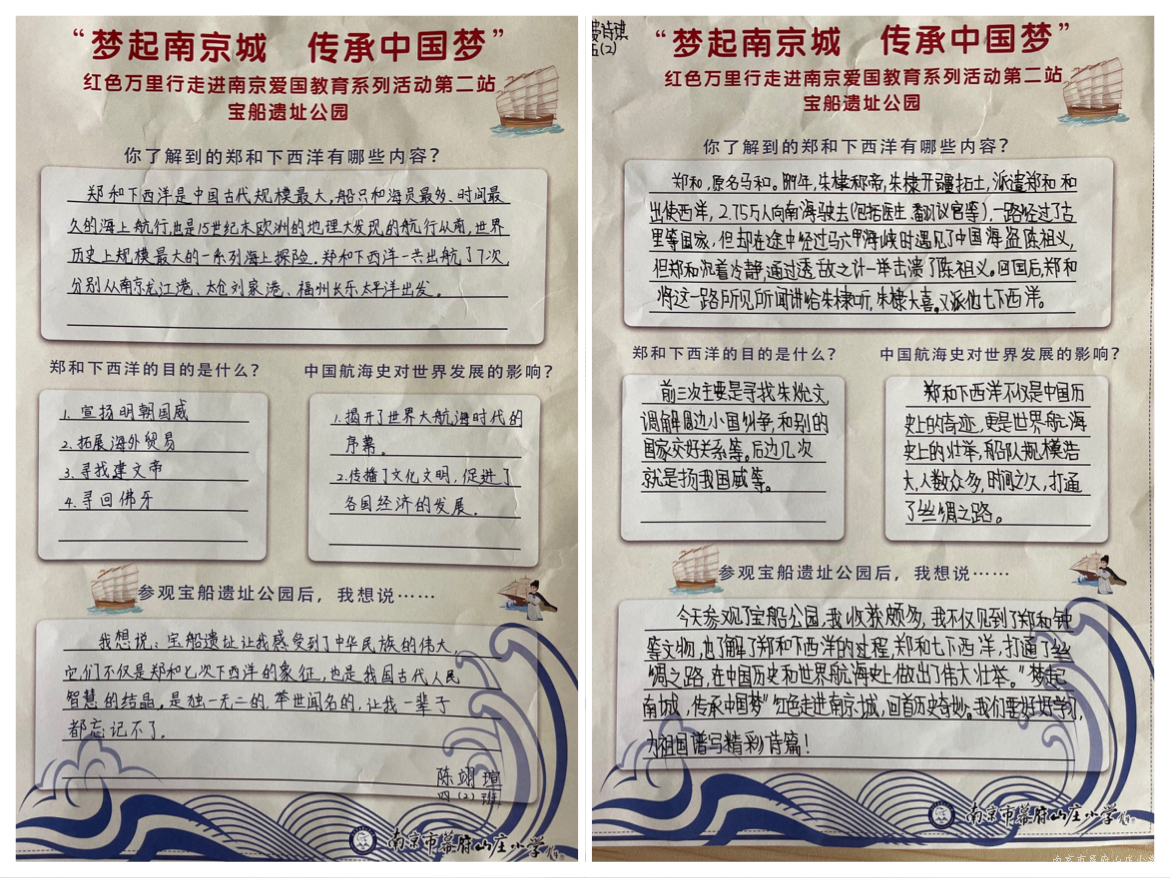 “梦起南京城 传承中国梦”
红色万里行走进南京爱国教育系列活动第二站
宝船遗址公园
你了解到的郑和下西洋有哪些内容？
郑和下西洋是中国古代规模最大，船只和海员最多、时间最
久的海上航行，也是15世纪末欧洲的地理大发现的航行从前，世界
历史上规模最大的一系列海上探险。郑和下西洋一共出航了7次，
分别从南京龙江港、太仓刘家港、福州长乐太平洋出发。
郑和下西洋的目的是什么？
1. 宣扬明朝国威
2. 拓展海外贸易
3. 寻找建文帝
4. 寻回佛牙
中国航海史对世界发展的影响？
1. 揭开了世界大航海时代的
序幕。
2. 传播了文化文明，促进了
各国经济的发展。
参观宝船遗址公园后，我想说……
我想说：宝船遗址让我感受到了中华民族的伟大，
它们不仅是郑和七次下西洋的象征，也是我国古代人民
智慧的结晶。是独一无二的，举世闻名的，让我一辈子
都忘记不了。
陈翊瑄
四（2）班
南京市幕府山庄小学
诗琪
五(2)
“梦起南京城 传承中国梦”
红色万里行走进南京爱国教育系列活动第二站
宝船遗址公园
你了解到的郑和下西洋有哪些内容？
郑和，原名马和。年，朱棣称帝，朱棣开疆拓土，派遣郑和和
出使西洋，2.75万人向南海驶去（包括医生 翻议官等），一路经过了古
里等国家，但却在途中经过马六甲海峡时遇见了中国海盗陈祖义，
但郑和沉着冷静，通过透敌之计一举击溃了陈祖义。回国后，郑和
将这一路所见所闻讲给朱棣听，朱棣大喜。又派他七下西洋。
郑和下西洋的目的是什么？
前三次主要是寻找朱允炆
调解周边小国纠争，和别的
国家交好关系等。后边几次
就是扬我国威等。
中国航海史对世界发展的影响？
郑和下西洋不仅是中国历
史上的奇迹，更是世界航海
史上的壮举，船队规模浩
大，人数众多，时间之久，打通
了丝绸之路。
参观宝船遗址公园后，我想说……
今天参观了宝船公园，我收获颇多，我不仅见到了郑和钟
等文物，也了解了郑和下西洋的过程，郑和七下西洋，打通了丝
绸之路，在中国历史和世界航海史上做出了伟大壮举。“梦起
南城，传承中国梦”红色走进南京城，回首历史奇妙。我们要好好学习，
为祖国谱写精彩诗篇！
南京市幕府山庄小学
南京市幕府山庄小学